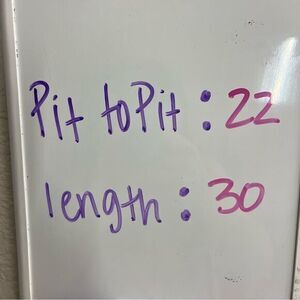 Pit to Pit : 22
length : 30